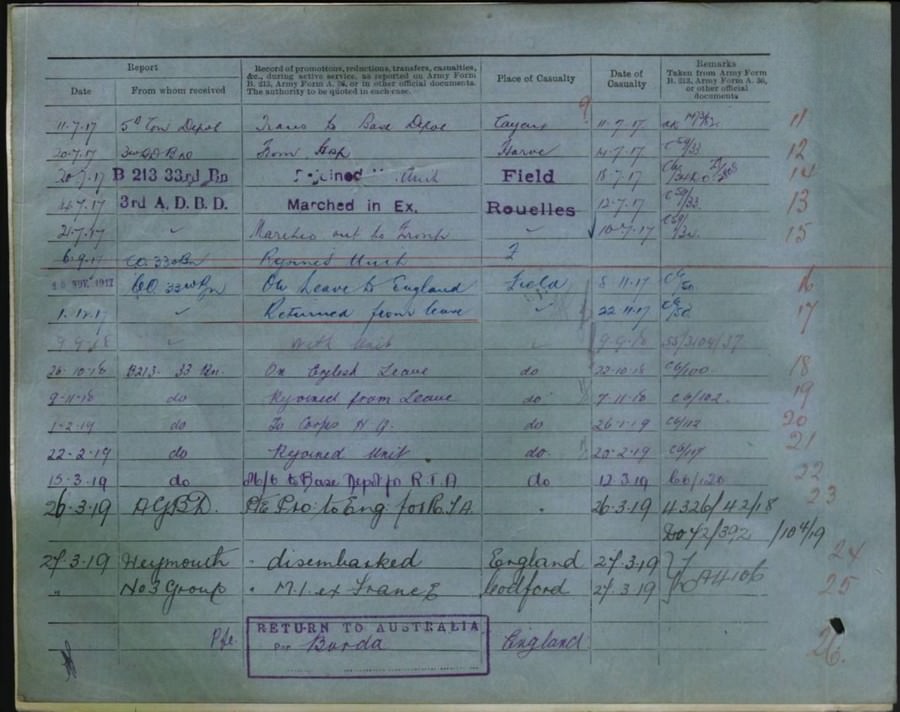 Report
Record of promotions, reductions, transfers, casualties, &c., during active service, as reported on Army Form B. 213, Army Form A. 36, or in other official documents. The authority to be quoted in each case.
Place of Casualty
Date of Casualty
Remarks Taken from Army Form B. 213, Army Form A. 36, or other official documents
Date From whom received
9
11-7-17 Depot Trans to Base Depot 11-7-17 11
20-7-17 From Havre 14-7-17 12
20-7-17 B 213 33rd Bn Rejoined Unit Field 18-7-17 14
3rd A. D. B. D. Marched in Ex. Rouelles 12-7-17 13
21-7-17 " Marched out to Front " 10-7-17 15
6-9-17 CO 33 Bn Rejoined Unit
NOV. 1917 CO. 33rd Bn On Leave to England Field 8-11-17 16
1-12-17 " Returned from leave " 22-11-17 17
9-9-18 " With Unit " 9-9-18 SS/3104/37
26-10-18 B213. 33 Bn. On English Leave do 22-10-18 C6/100 18
9-11-18 do Rejoined from Leave do 7-11-18 C6/102 19
1-2-19 do To Corps H.Q. do 26-1-19 C6/112 20
22-2-19 do Rejoined Unit do 20-2-19 C6/117 21
15-3-19 do M/o to Base Depot for R.T.A do 12-3-19 C6/120 22
26-3-19 A.G.B.D. Pro: to Eng for R.T.A " 26-3-19 4326/42/18 23
Do 42/392 /10 4/19
27-3-19 Weymouth " disembarked England 27-3-19 24
" No 3 Group " M.I. ex France Codford 27-3-19 25
Pfe. RETURN TO AUSTRALIA
Per Burda England 26.